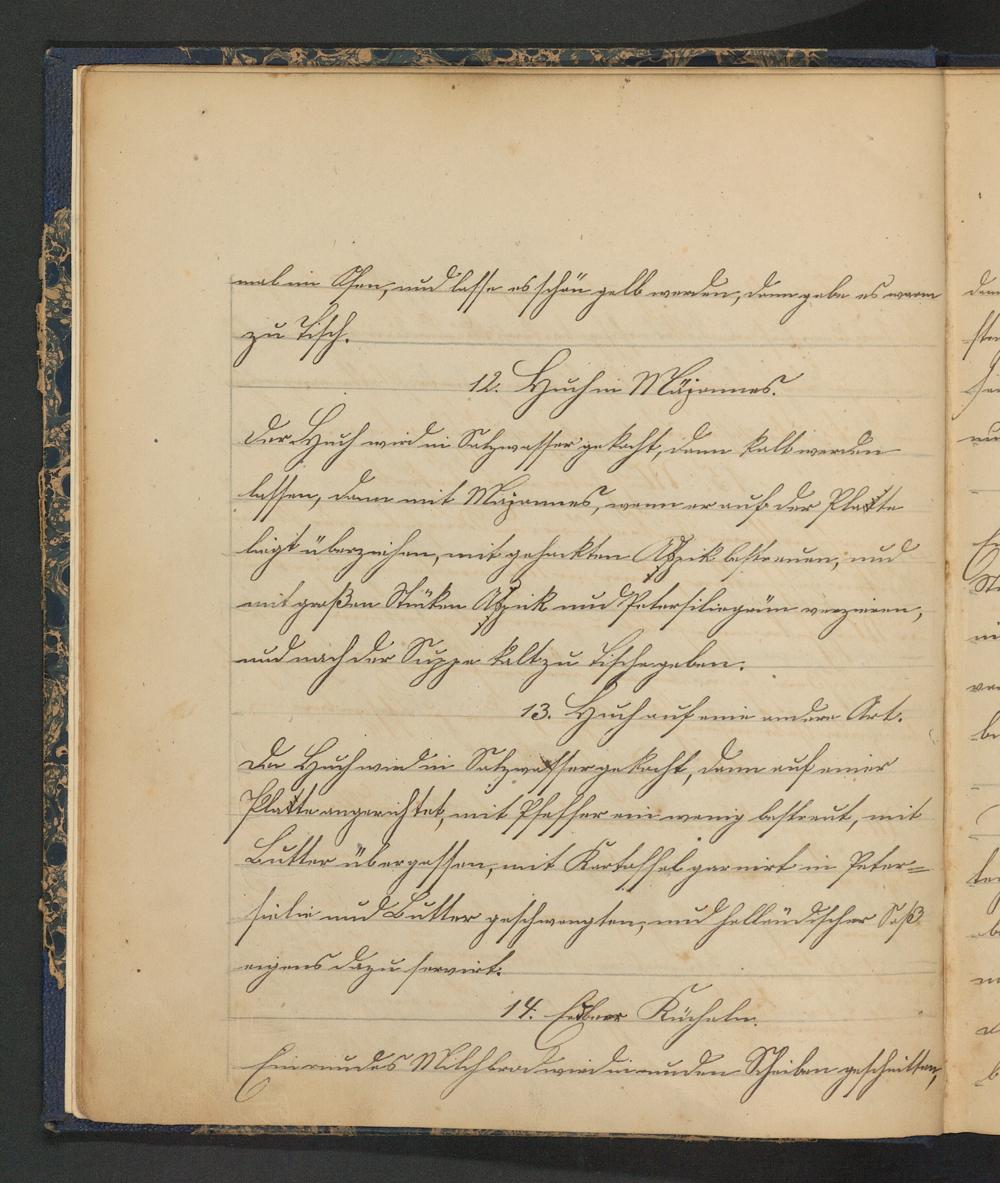 mal im Ofen, und lasse es schön gelb werden, dann gebe es warm
zu Tisch.
12. Huch in Mäjonnes.
Der Huch wird in Salzwasser gekocht, dann kalt werden
lassen, dann mit Majonnes, wenn er auf der Platte
liegt überziehen, mit gehackten Aspik bestreuen, und
mit großen Stüken Aspik und Petersiliegrün verzieren,
und nach der Suppe kalt zu Tische geben.
13. Huch auf eine andere Art.
Der Huch wird in Salzwasser gekocht, dann auf einer
Platte angerichtet, mit Pfeffer ein wenig bestreut, mit
Butter übergossen, mit Kartoffel garnirt in Peter=
silie und Butter geschwengten, und holländischer Soß
eigens dazu servirt.
14. Kücheln.
Ein rundes Milchbrod wird in runden Scheiben geschnitten,